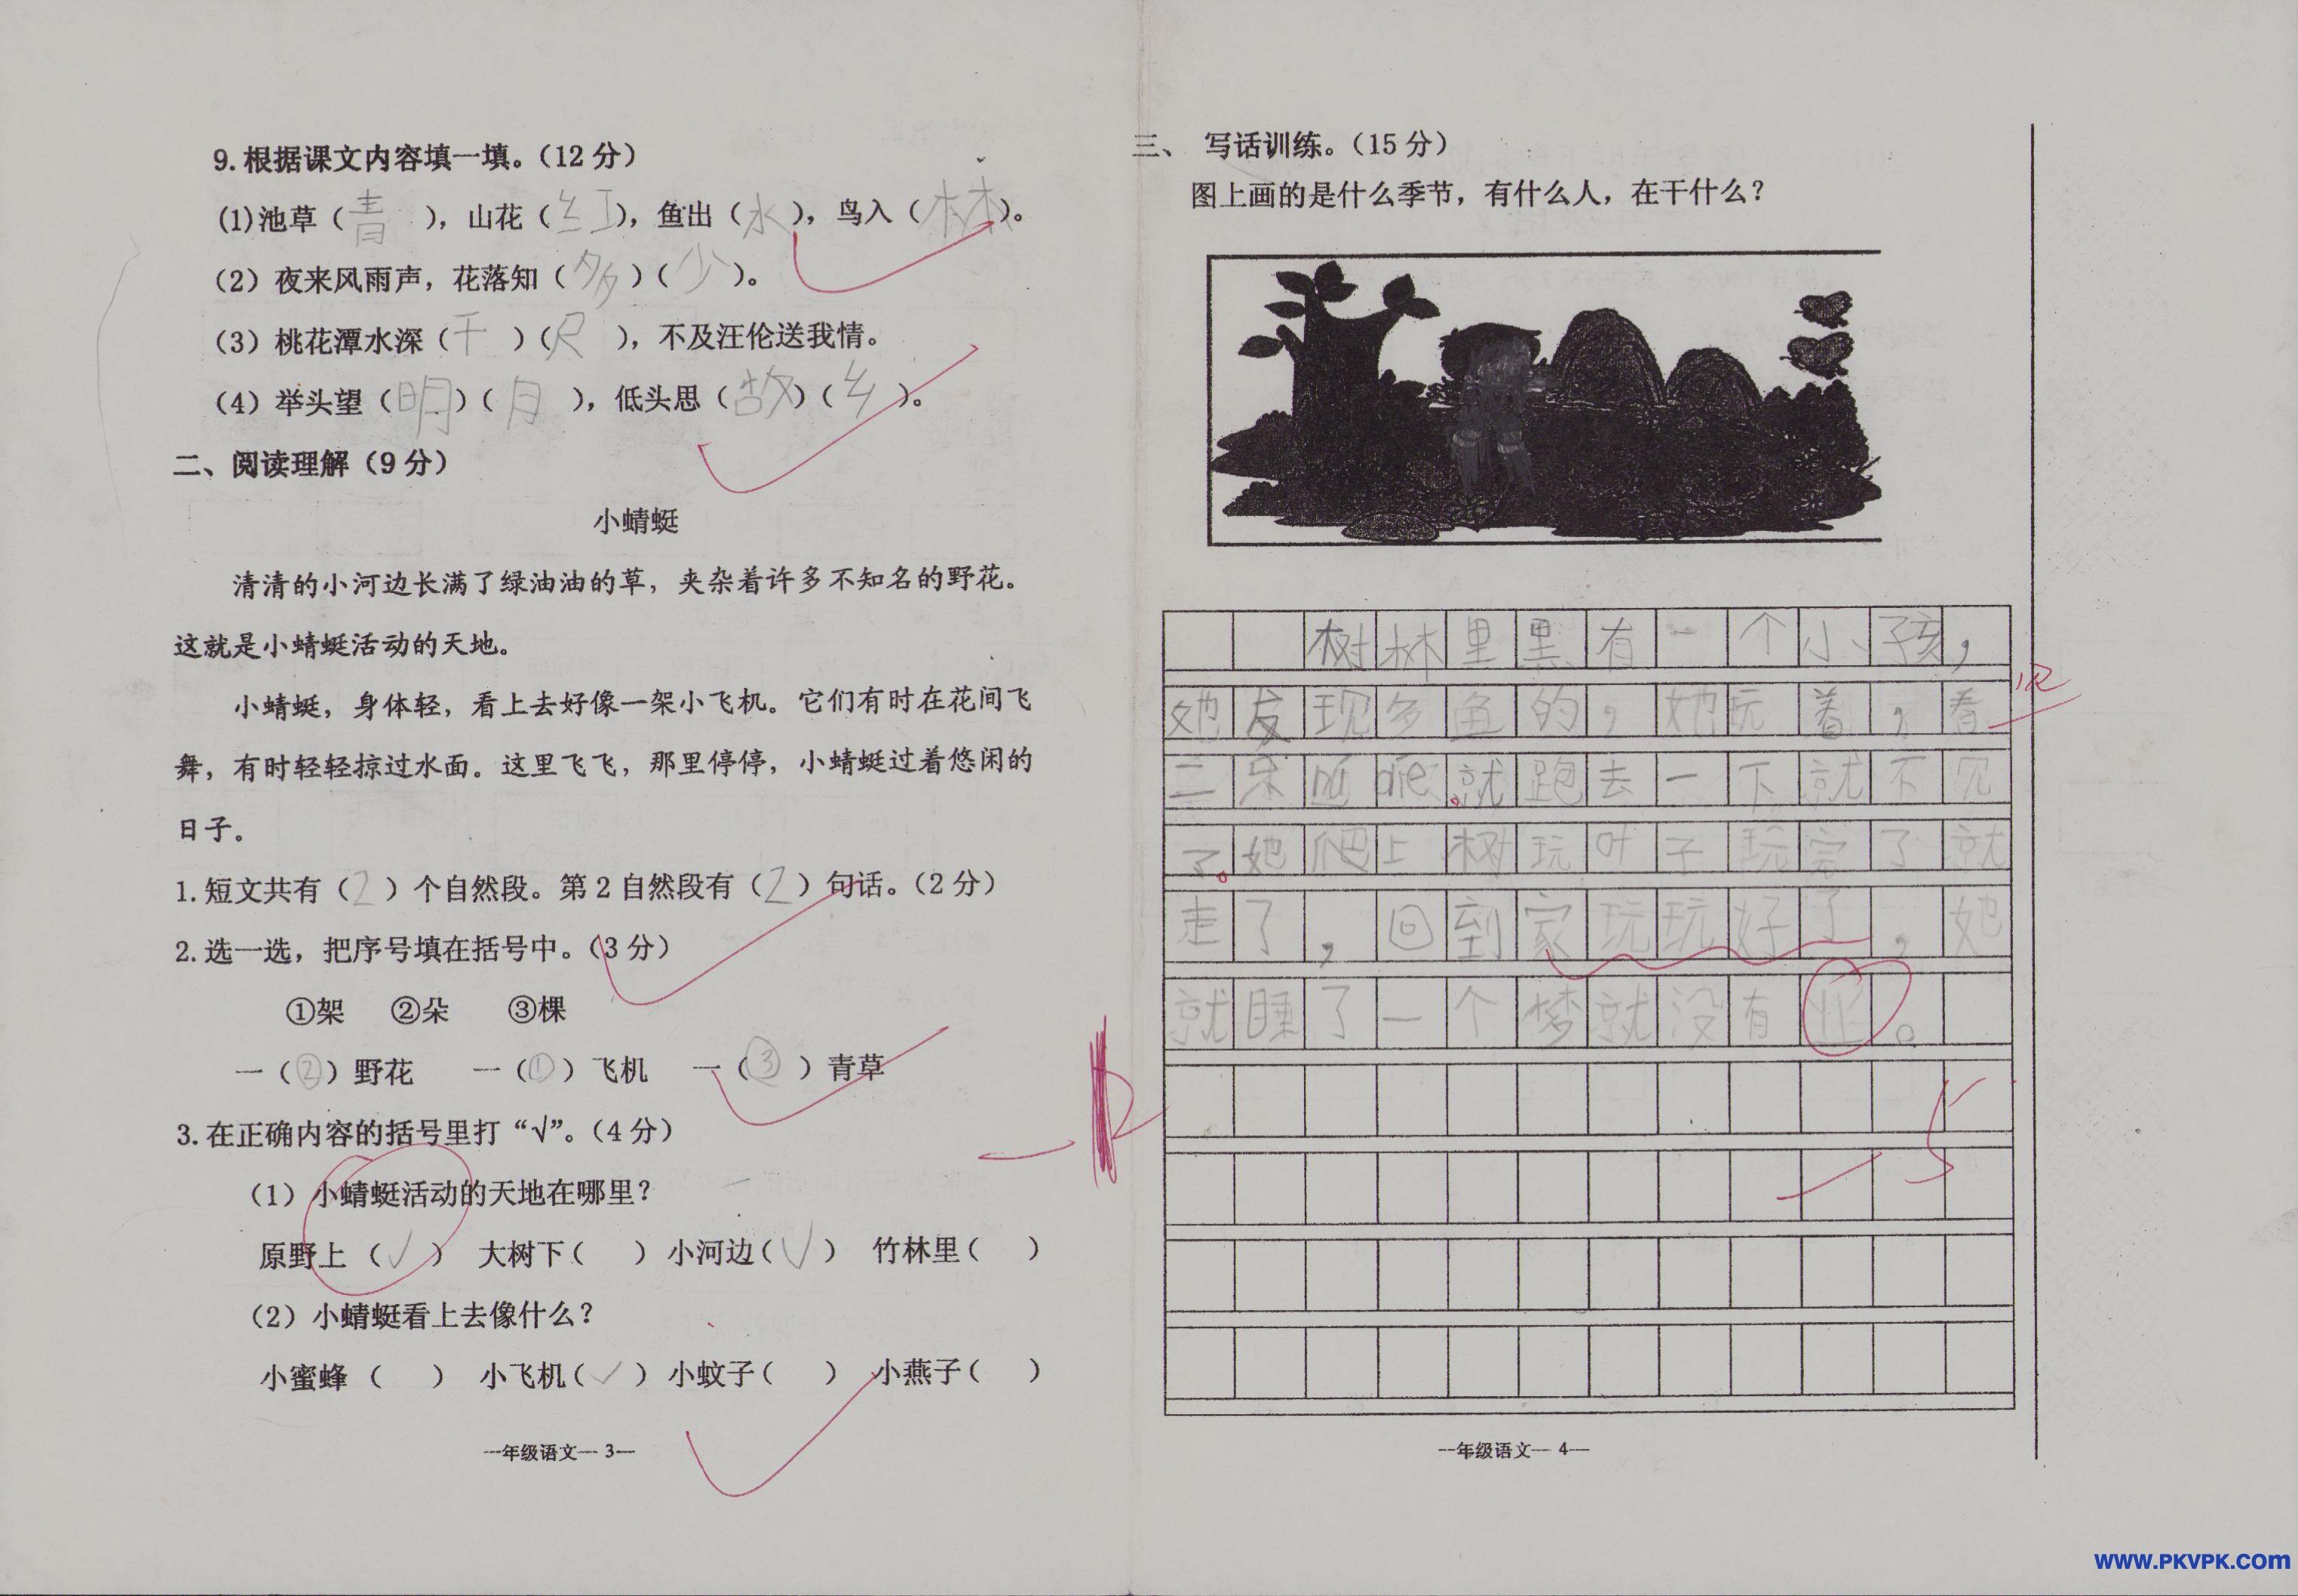 9.根据课文内容填一填。（12分）
(1)池草（青），山花（红），鱼出（水），鸟入（林）。
（2）夜来风雨声，花落知（多）（少）。
（3）桃花潭水深（千）（尺），不及汪伦送我情。
（4）举头望（明）（月），低头思（故）（乡）。
二、阅读理解（9分）
小蜻蜓
清清的小河边长满了绿油油的草，夹杂着许多不知名的野花。
这就是小蜻蜓活动的天地。
小蜻蜓，身体轻，看上去好像一架小飞机。它们有时在花间飞
舞，有时轻轻掠过水面。这里飞飞，那里停停，小蜻蜓过着悠闲的
日子。
1.短文共有（2）个自然段。第2自然段有（2）句话。（2分）
2.选一选，把序号填在括号中。（3分）
①架 ②朵 ③棵
一（②）野花 一（①）飞机 一（③）青草
3.在正确内容的括号里打“√”。（4分）
（1）小蜻蜓活动的天地在哪里？
原野上（√） 大树下（ ） 小河边（√） 竹林里（ ）
（2）小蜻蜓看上去像什么？
小蜜蜂（ ） 小飞机（√） 小蚊子（ ） 小燕子（ ）
一年级语文— 3—
三、 写话训练。（15分）
图上画的是什么季节，有什么人，在干什么？
树林里黑有一个小孩，
她发现多鱼的，她玩着，看
就跑去一下就不见
了。她爬上树玩叶子玩完了就
走了，回到家玩玩好了，她
就睡了一个梦就没有。
-5
一年级语文— 4—
www.PKVPK.com